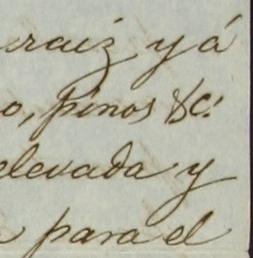 maiz y á
o, pinos &c.
elevada y
para el